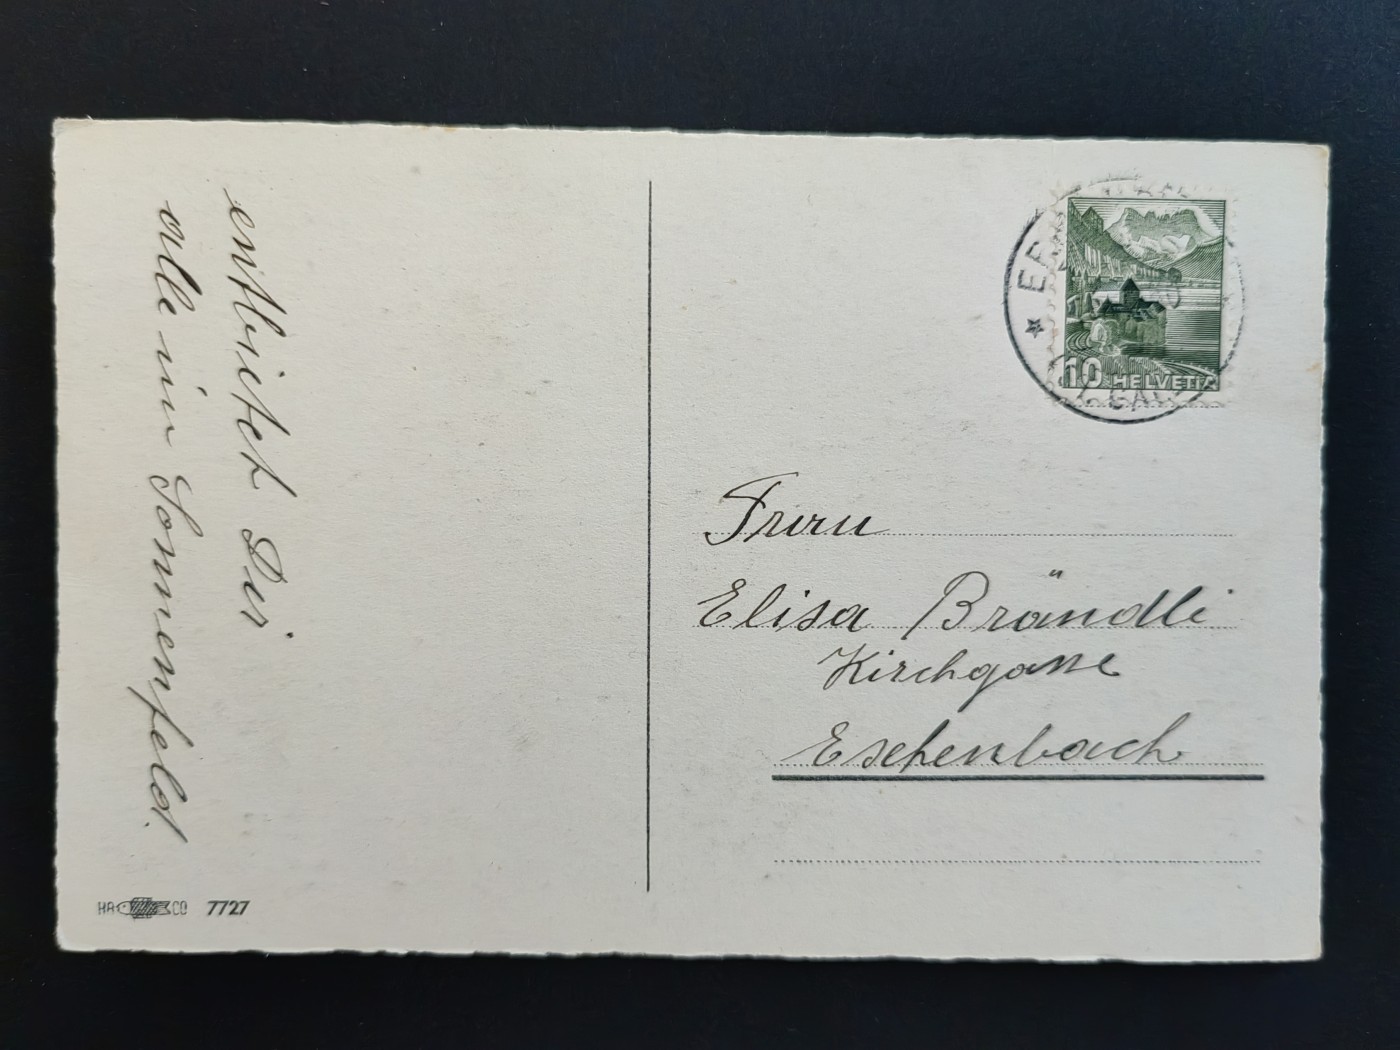 entbietet Dir
alle im Sonnenfeld.
HA CO 7727
10 HELVETIA
Frau
Elisa Brändli
Kirchgasse
Eschenbach